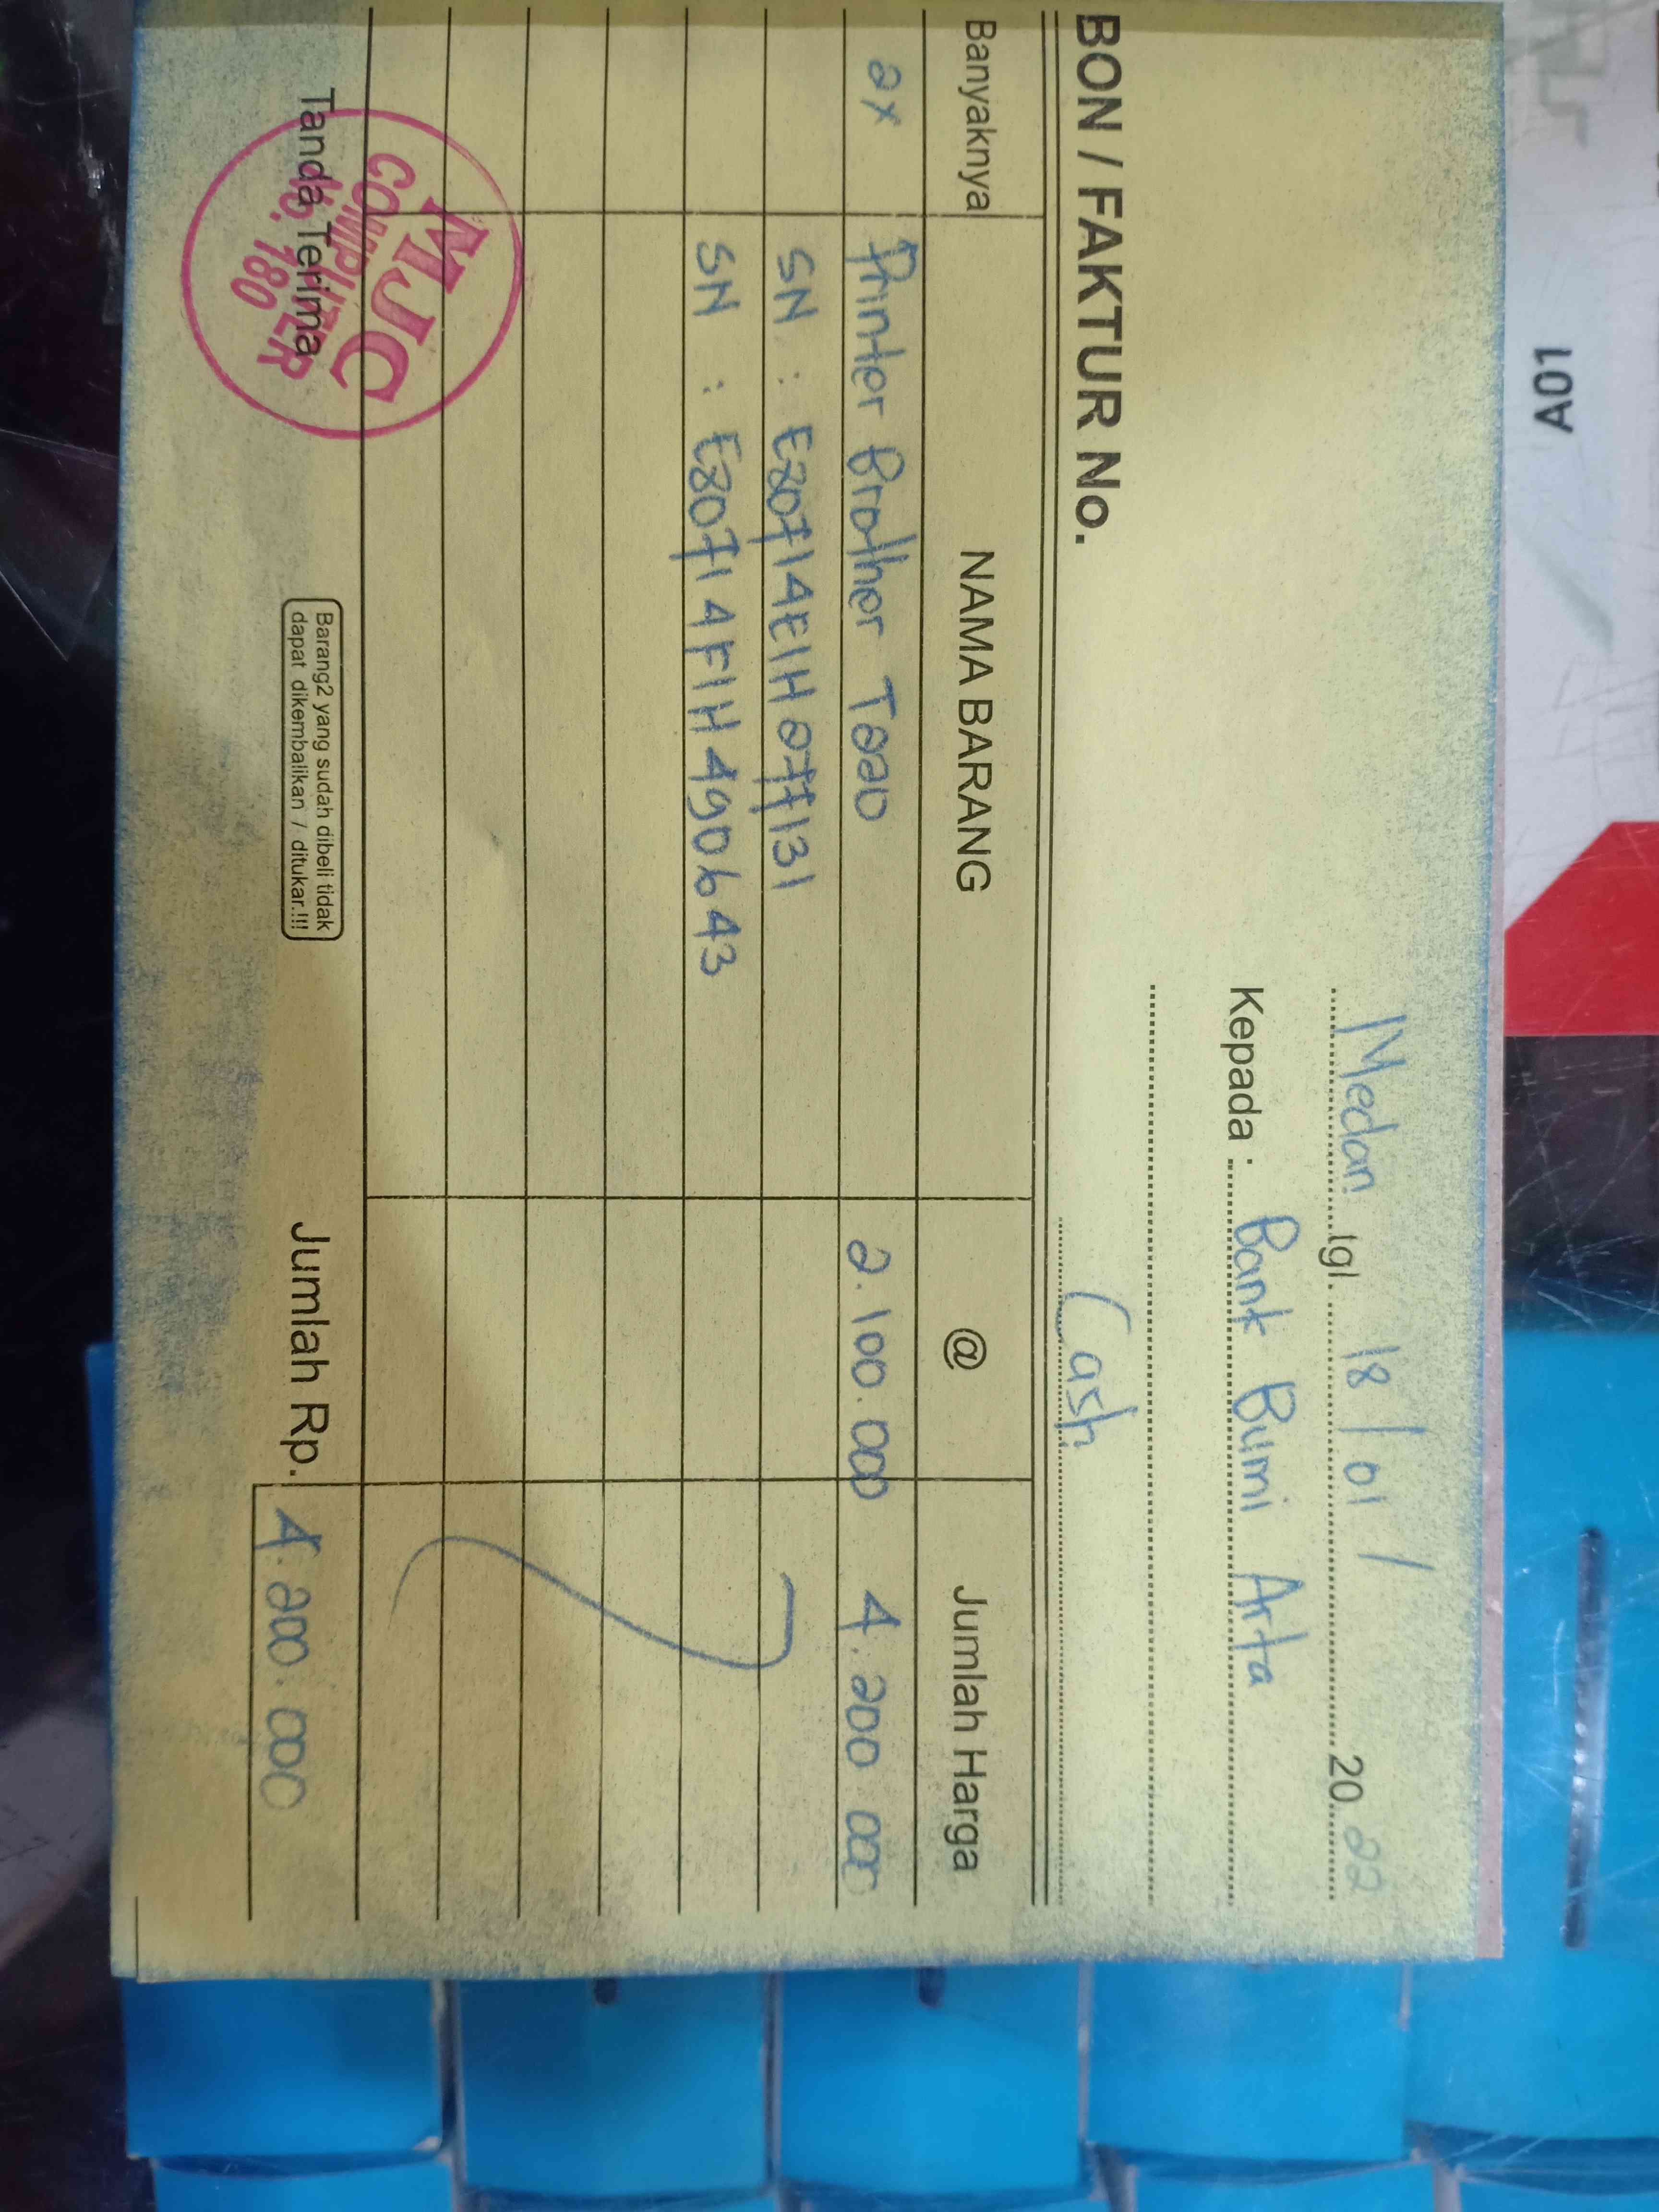 Medan tgl. 18 / 01 / 2022
Kepada : Bank Bumi Arta
Cash
BON / FAKTUR No.
Banyaknya NAMA BARANG @ Jumlah Harga
2x Printer Brother T220 2.100.000 4.200.000
SN : E80714E1H277131
SN : E80714F1H490643
Tanda Terima
MJC
COMPUTER
180
Barang2 yang sudah dibeli tidak
dapat dikembalikan / ditukar.!!!
Jumlah Rp. 4.200.000
A01